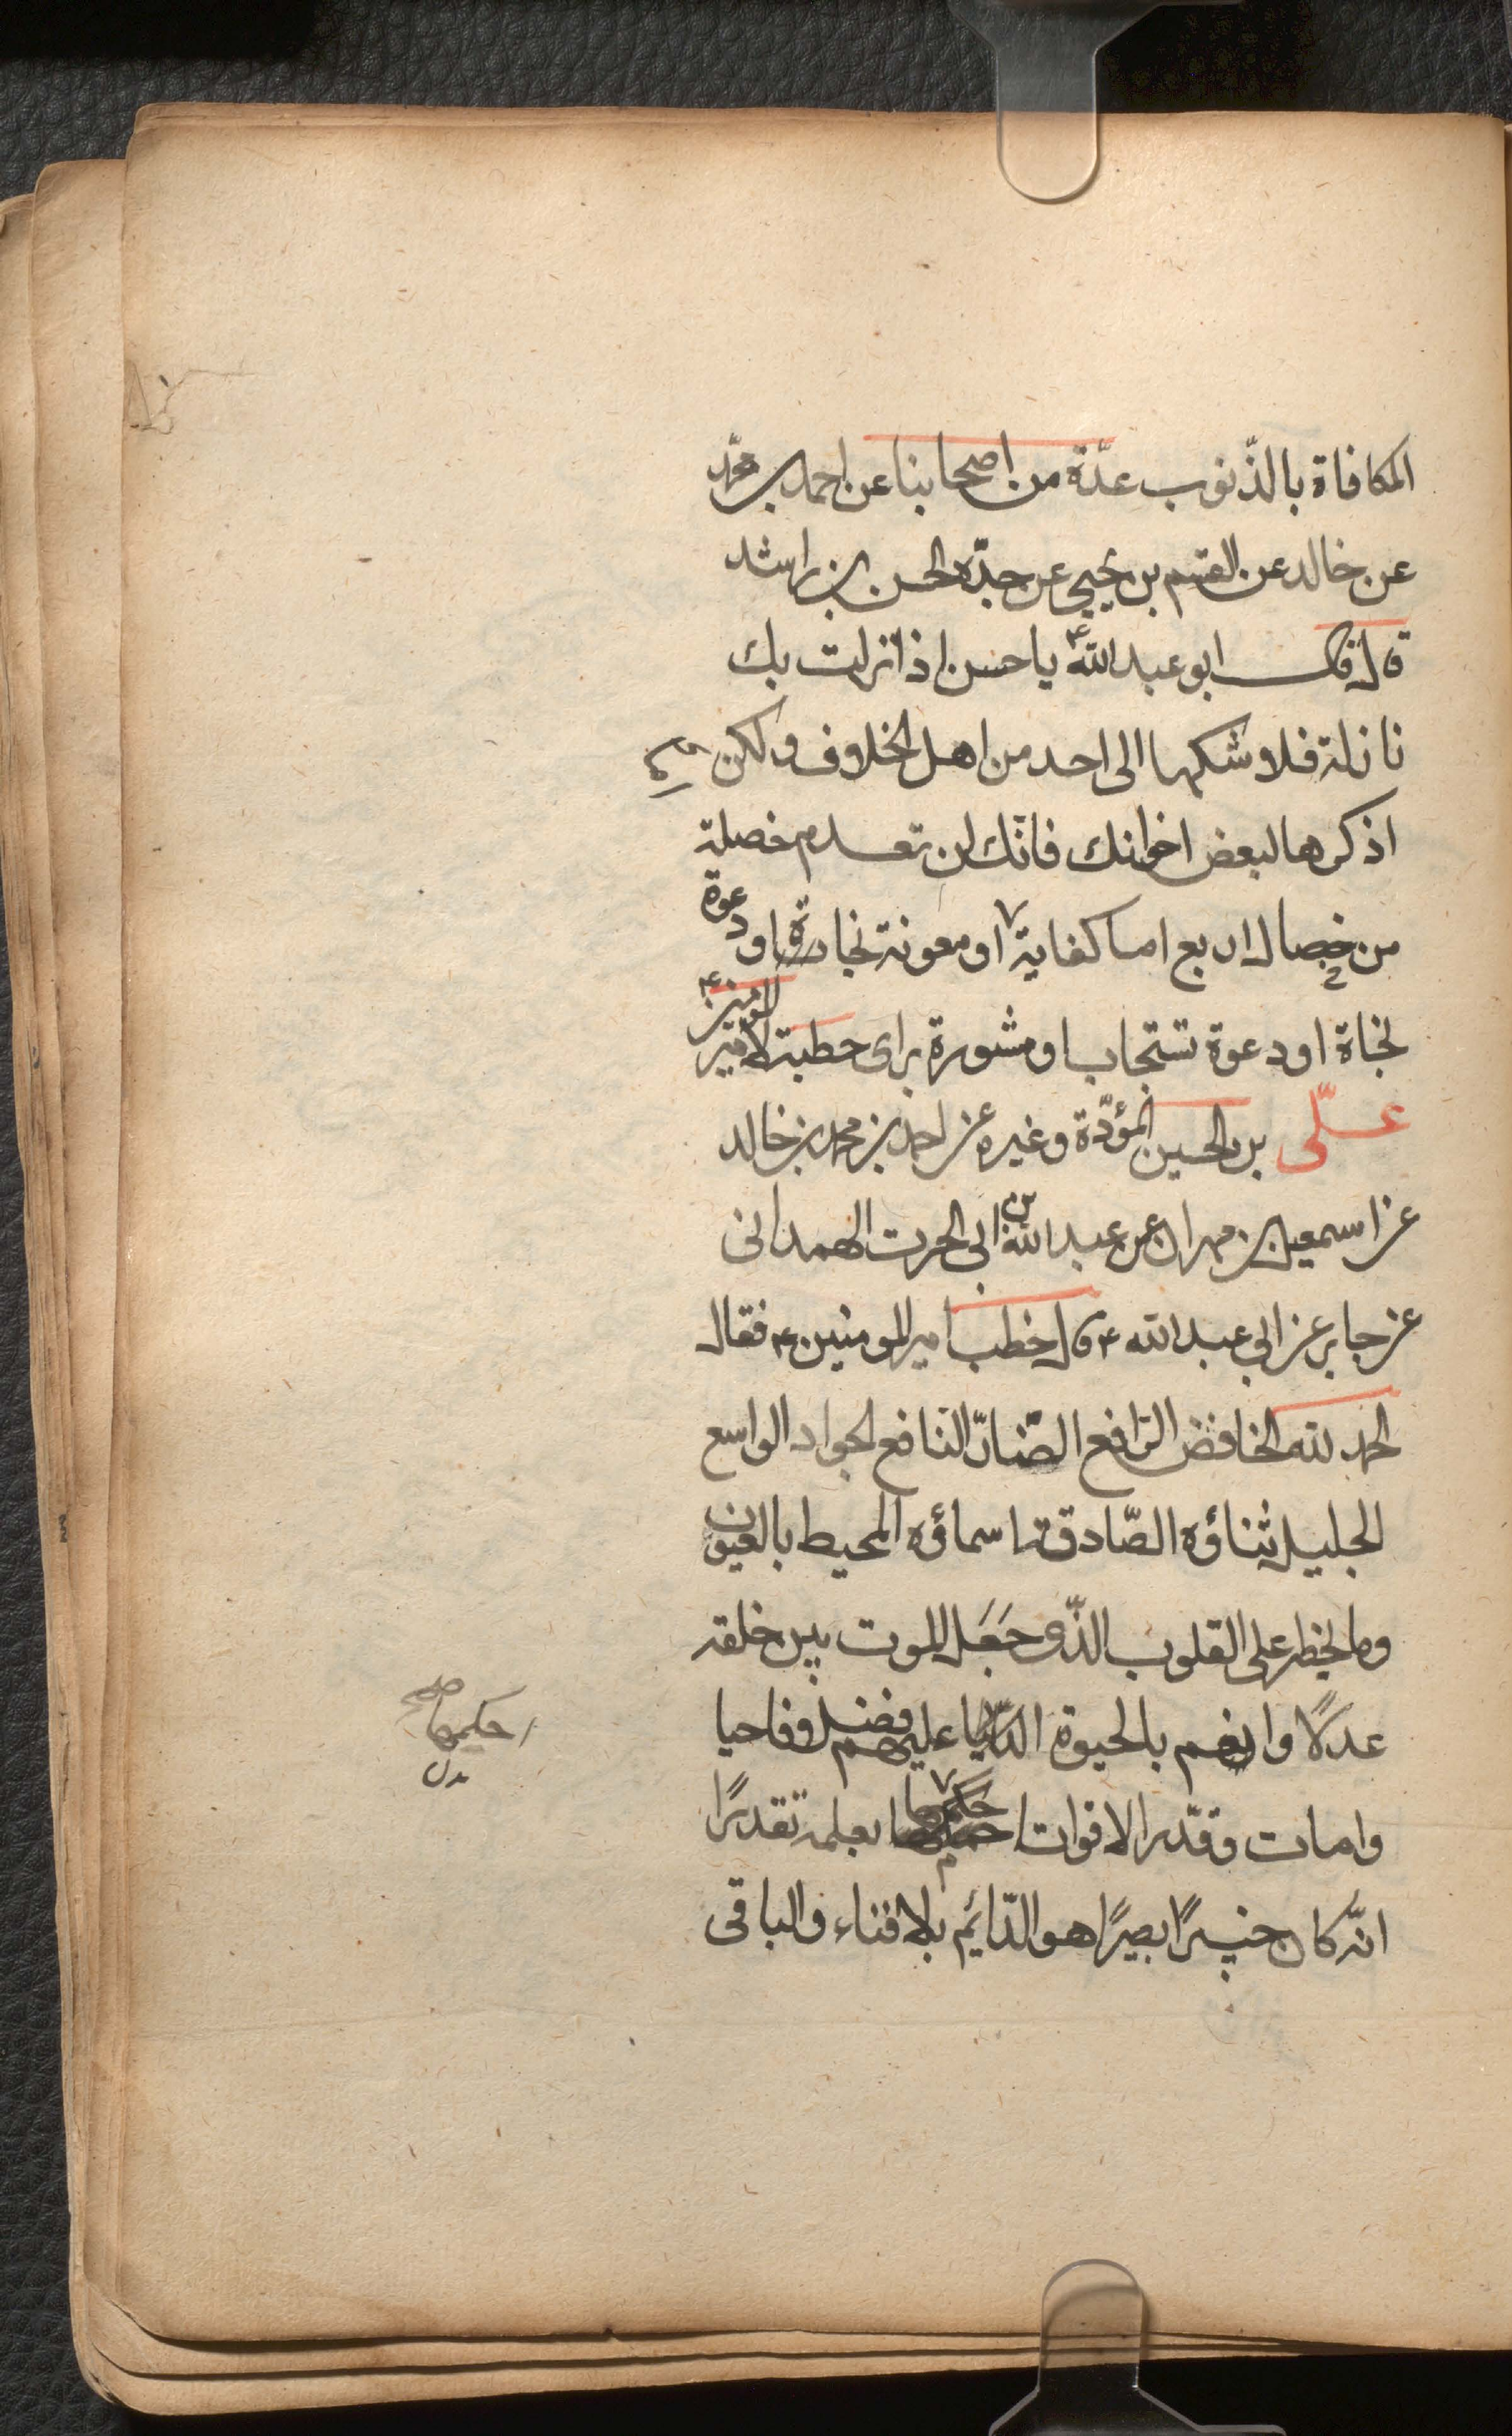 المكافاة بالذّنوب عدّة من اصحابنا عن احمد بن محمّد
عن خالد عن القسم بن يحيى عن جدّه الحسن بن راشد
قال قال ابو عبد الله ع يا حسن اذا نزلت بك
نازلة فلا تشكها الى احد من اهل الخلاف ولكن
اذكرها لبعض اخوانك فانّك لن تعدم خصلة
من خصال اربع اما كفاية او معونة بجاه او دعوة
او دعوة تستجاب او مشورة براى خطبة لامير المومنين ع
علّى بن الحسين المؤدّة وغيره عن احمد بن محمد بن خالد
عن اسمعيل بن مهران عن عبد الله بن ابى الحرث الهمدانى
عن جابر عن ابي عبد الله ع قال خطب امير المومنين ع فقال
الحمد لله الخافض الرّافع الضّارّ النافع الجواد الواسع
الجليل ثناؤه الصّادقة اسماؤه المحيط بالغيوب
وما يخطر على القلوب الذّى جَعَل الموت بين خلقه
عدلًا وانعم بالحيوة الدّنيا عليهم فضلا فاحيا
وامات وقدّر الاقوات احكمها بعلمه تقديرًا
انّه كان خبيرًا بصيرًا هو الدّائم بلا فناء والباقى
احكمها صح
بدل